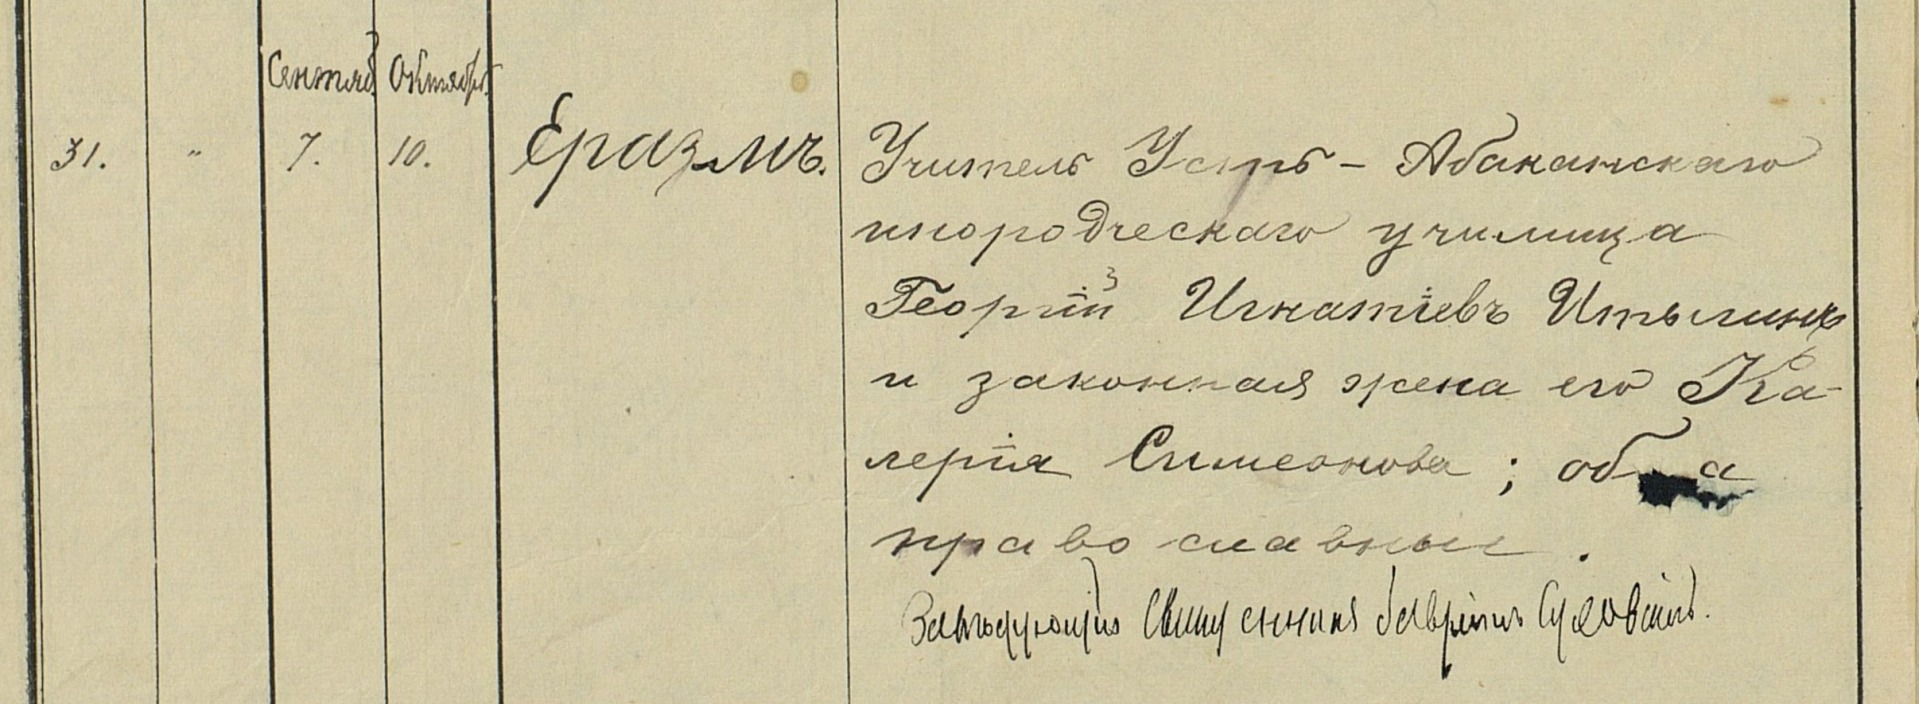 Сентяб. Октябр.
31. " 7. 10. Еразмъ. Учитель Усть-Абаканскаго
инородческаго училища
Георгій Игнатіевъ Итыгинъ
и законная жена его Ка-
лерія Симеонова; оба
православные.
Завѣдующій Священникъ Суховскій.